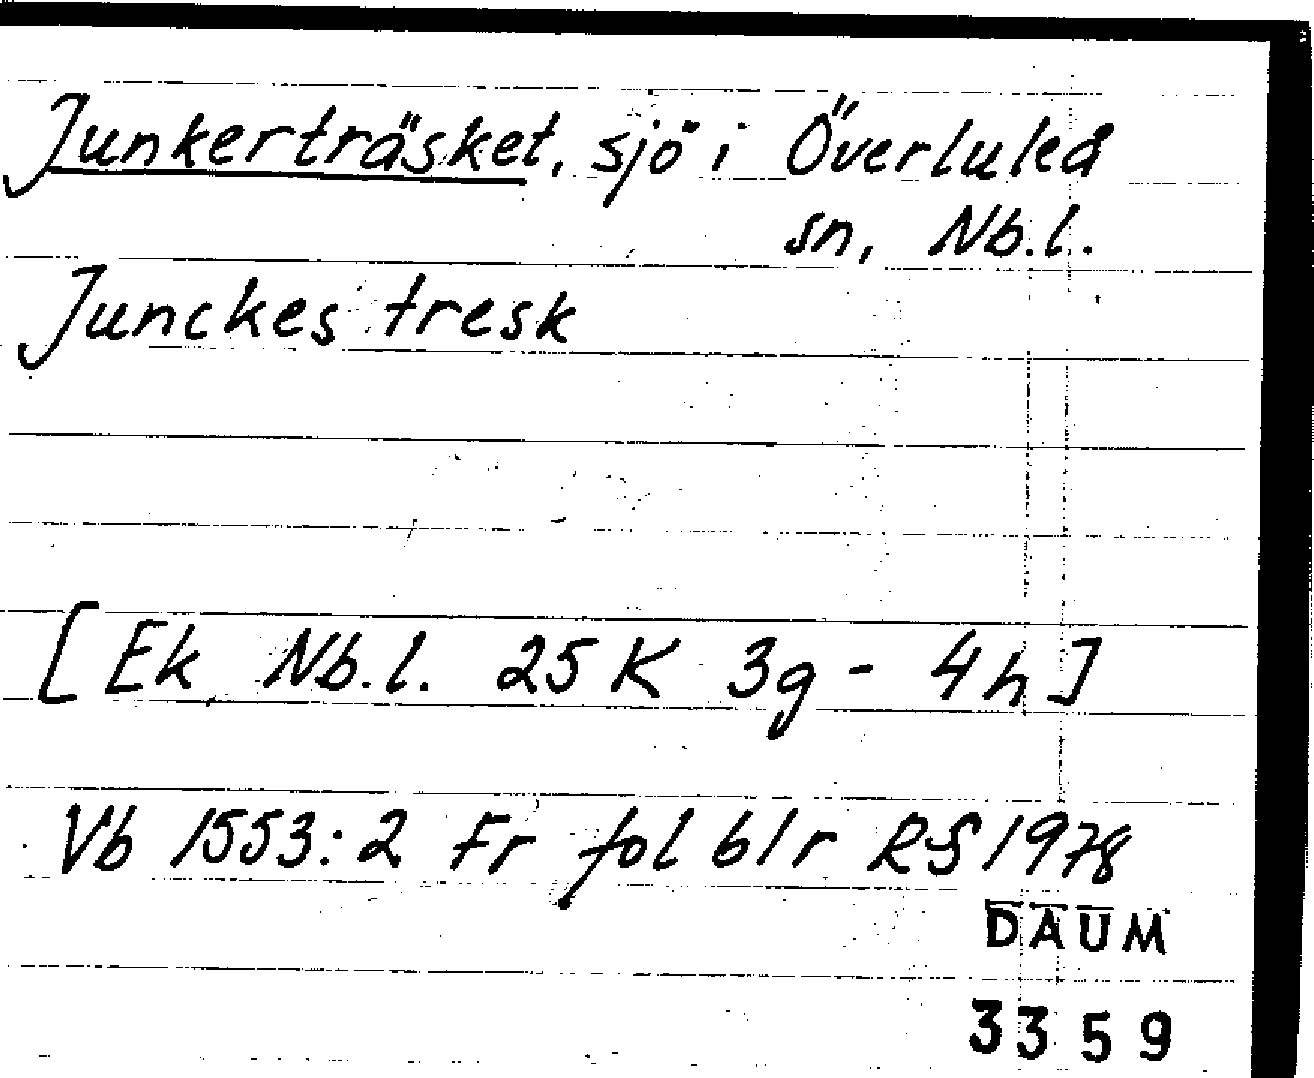 Junkerträsket, sjö i Överluleå
sn, Nb.l.
Junckes tresk
[Ek Nb.l. 25 K 3g - 4h]
Vb 1553:2 Fr fol 61r RS 1978
DAUM
3359